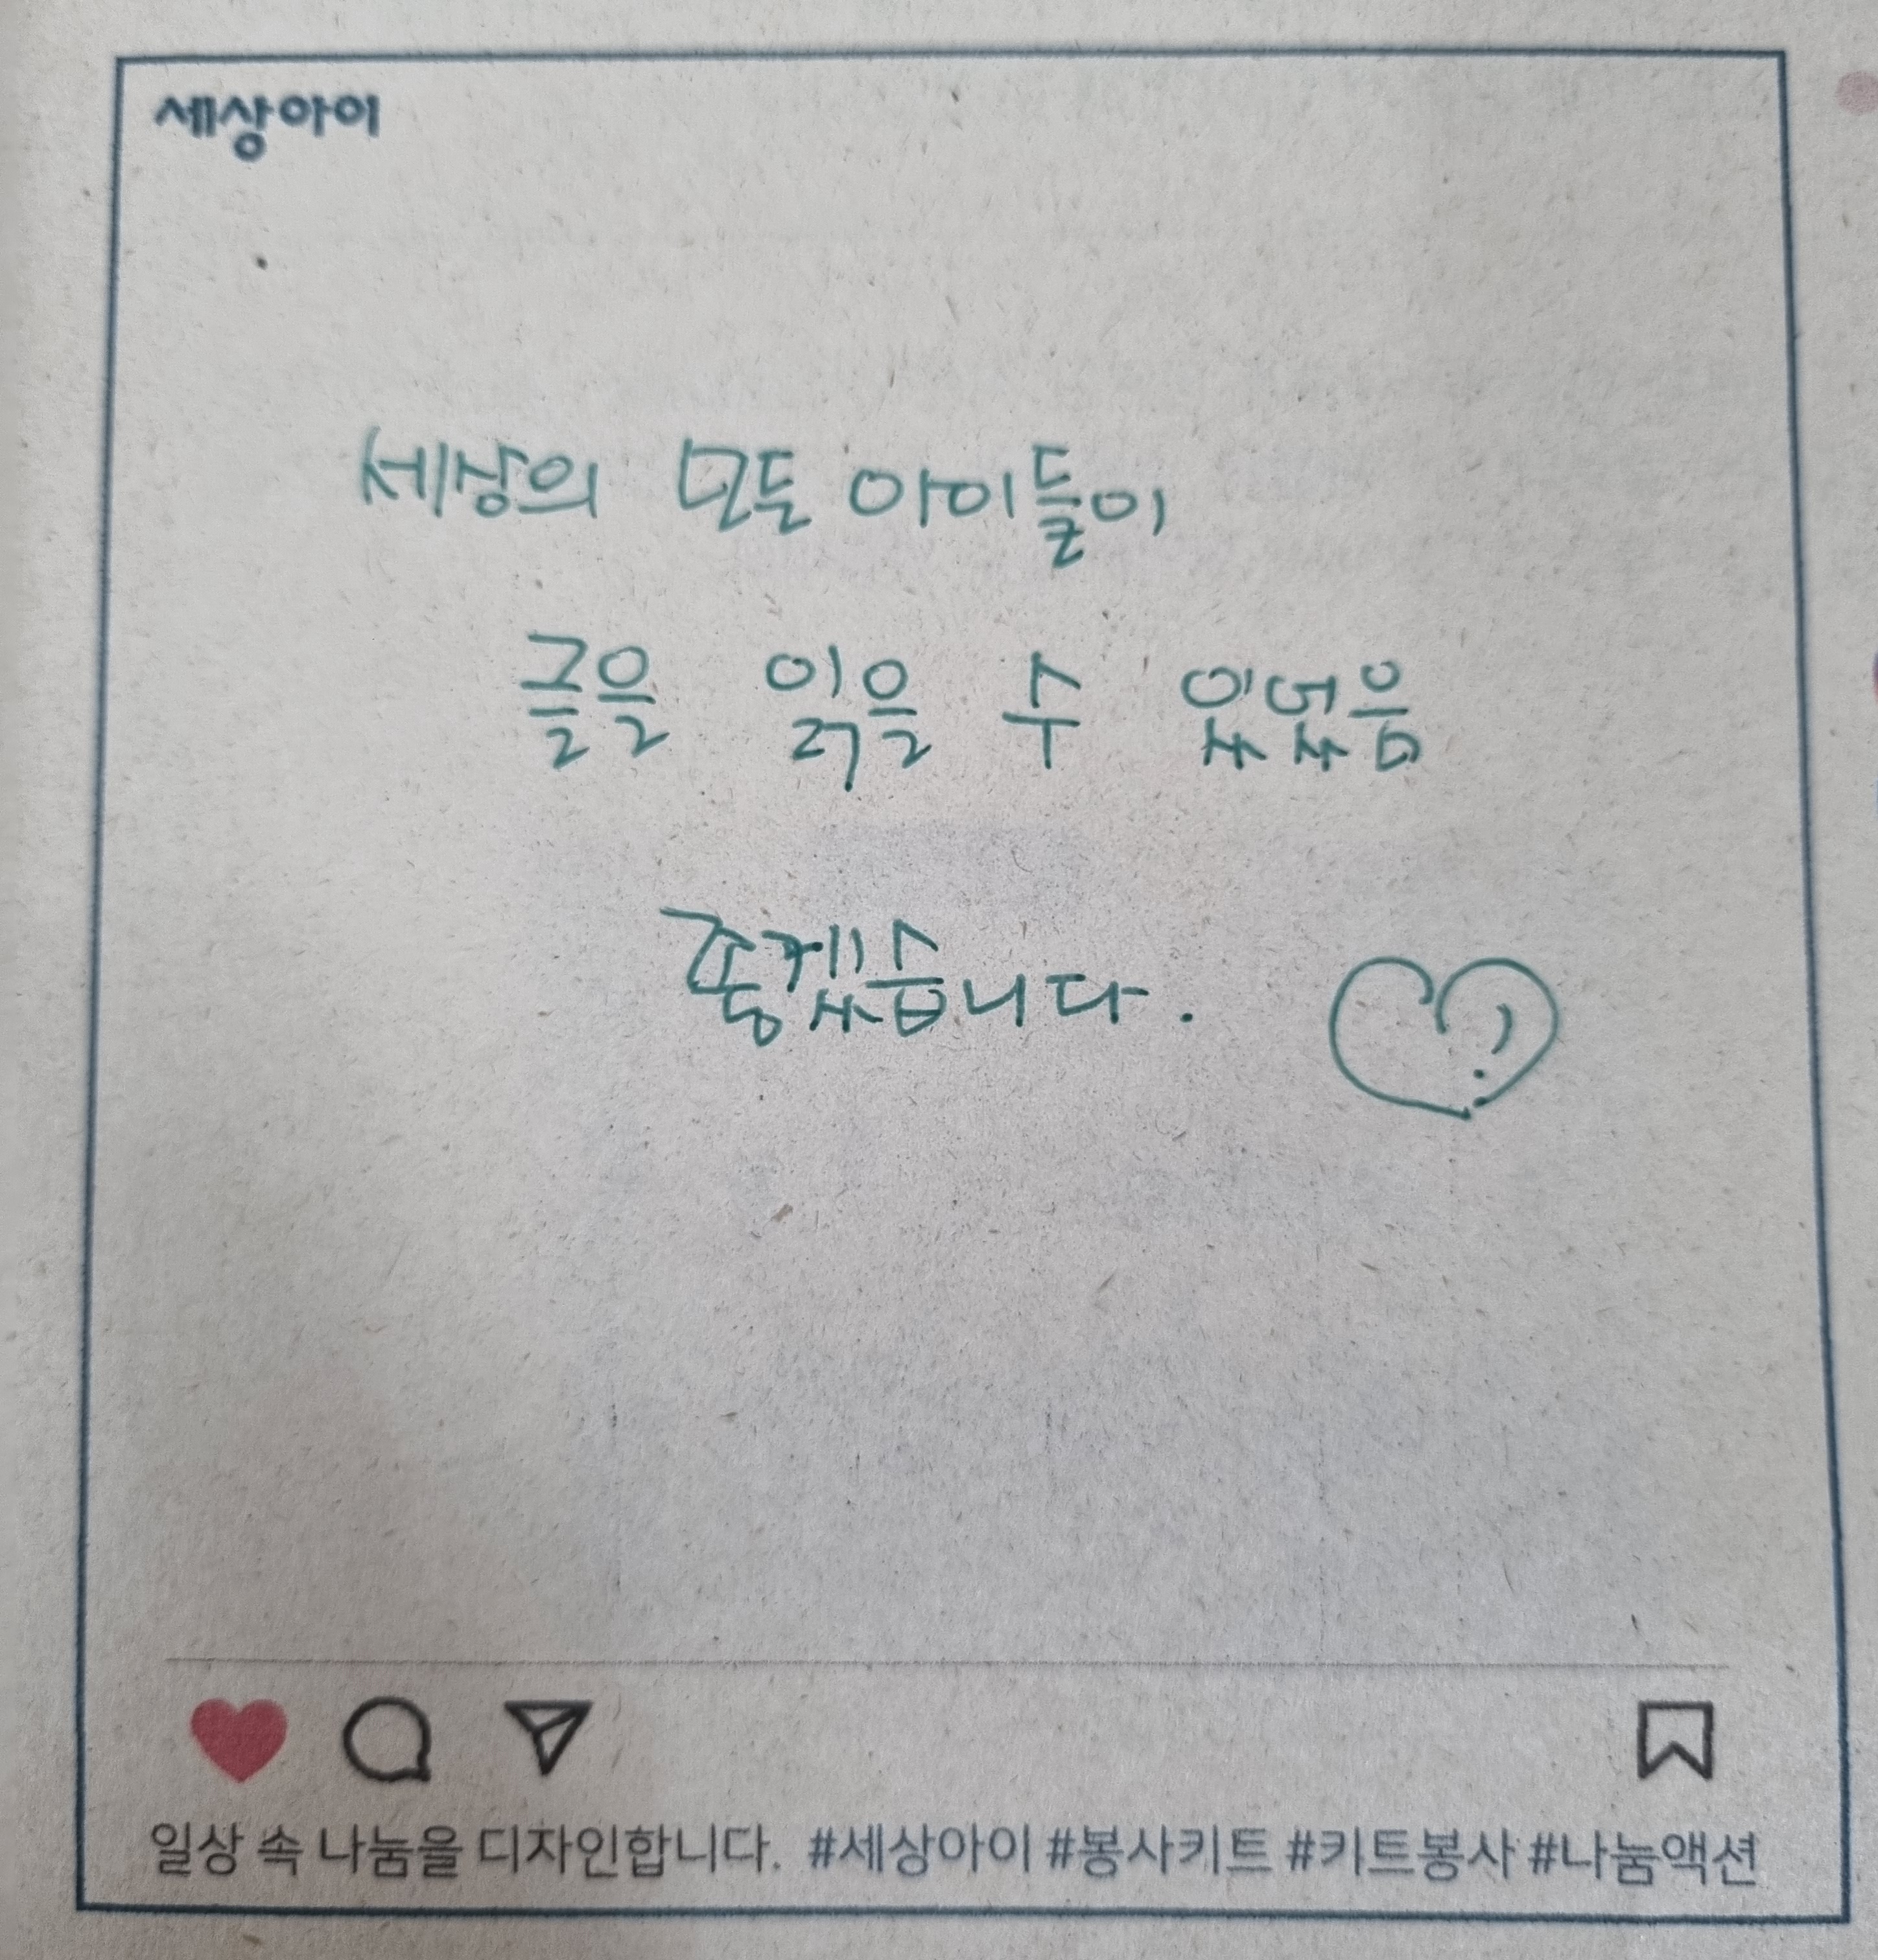 세상아이
세상의 모든 아이들이
글을 읽을 수 있었음
좋겠습니다.
일상 속 나눔을 디자인합니다. #세상아이 #봉사키트 #키트봉사 #나눔액션